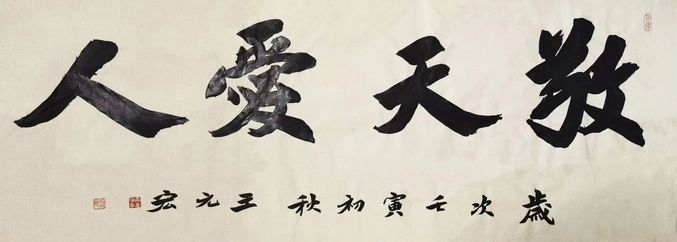 敬天愛人
歲次壬寅初秋王元宏